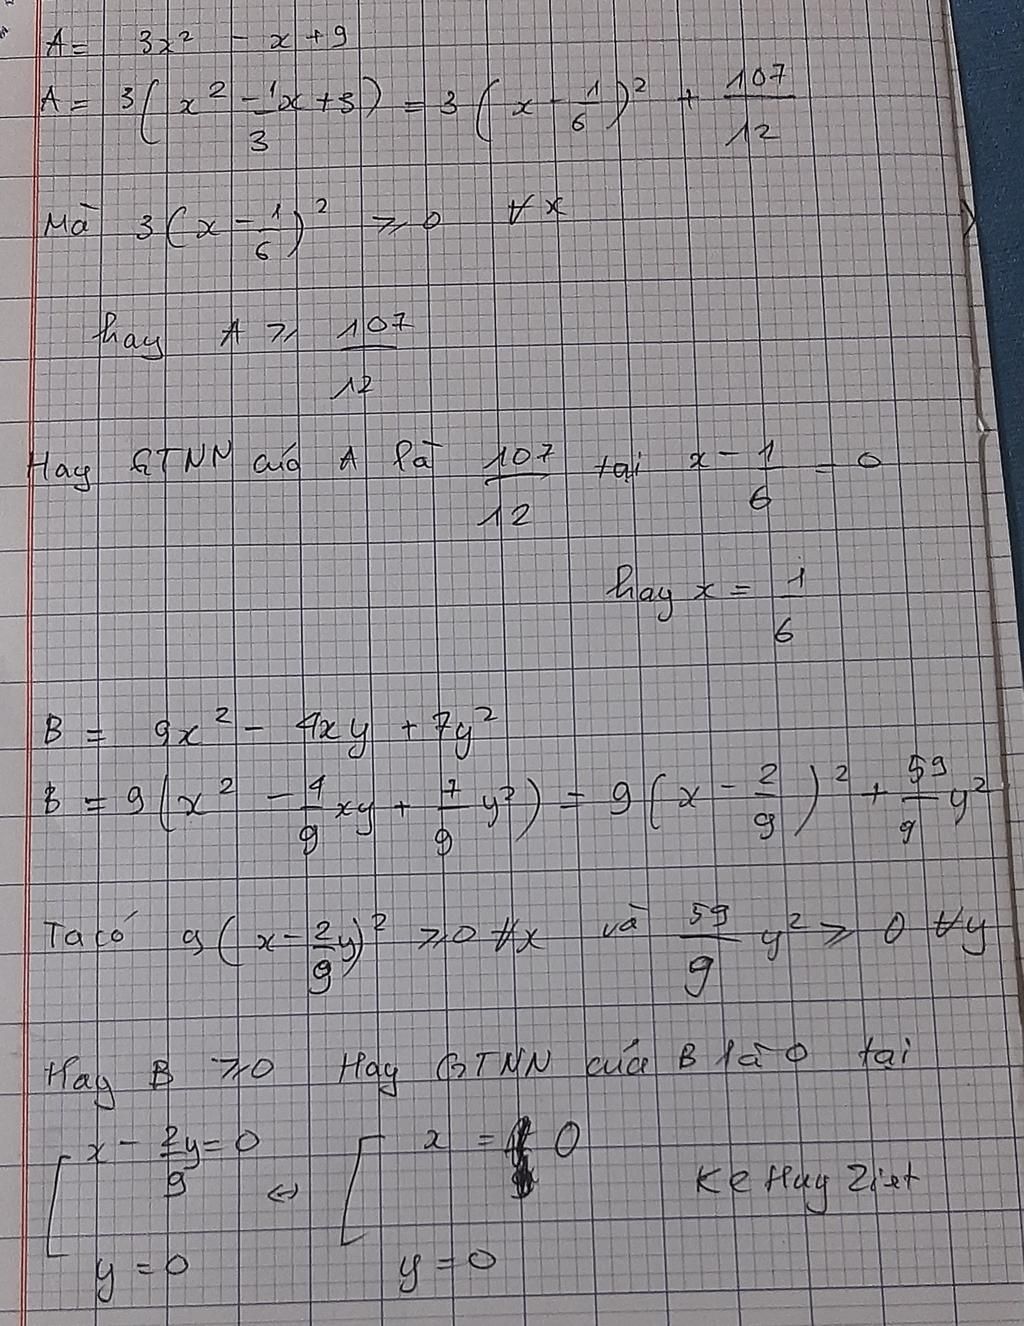 A = 3x² - x + 9
A = 3(x² - 1/3 x + 3) = 3(x - 1/6)² + 107/12
Mà 3(x - 1/6)² ⩾ 0 ∀x
hay A ⩾ 107/12
Hay GTNN của A là 107/12 tại x - 1/6 = 0
hay x = 1/6
B = 9x² - 4xy + 7y²
B = 9(x² - 4/9 xy + 7/9 y²) = 9(x - 2/9)² + 59/9 y²
Ta có 9(x - 2/9 y)² ⩾ 0 ∀x và 59/9 y² ⩾ 0 ∀y
Hay B ⩾ 0 Hay GTNN của B là 0 tại
[ x - 2/9 y = 0 ⇔ [ x = 0
y = 0 y = 0